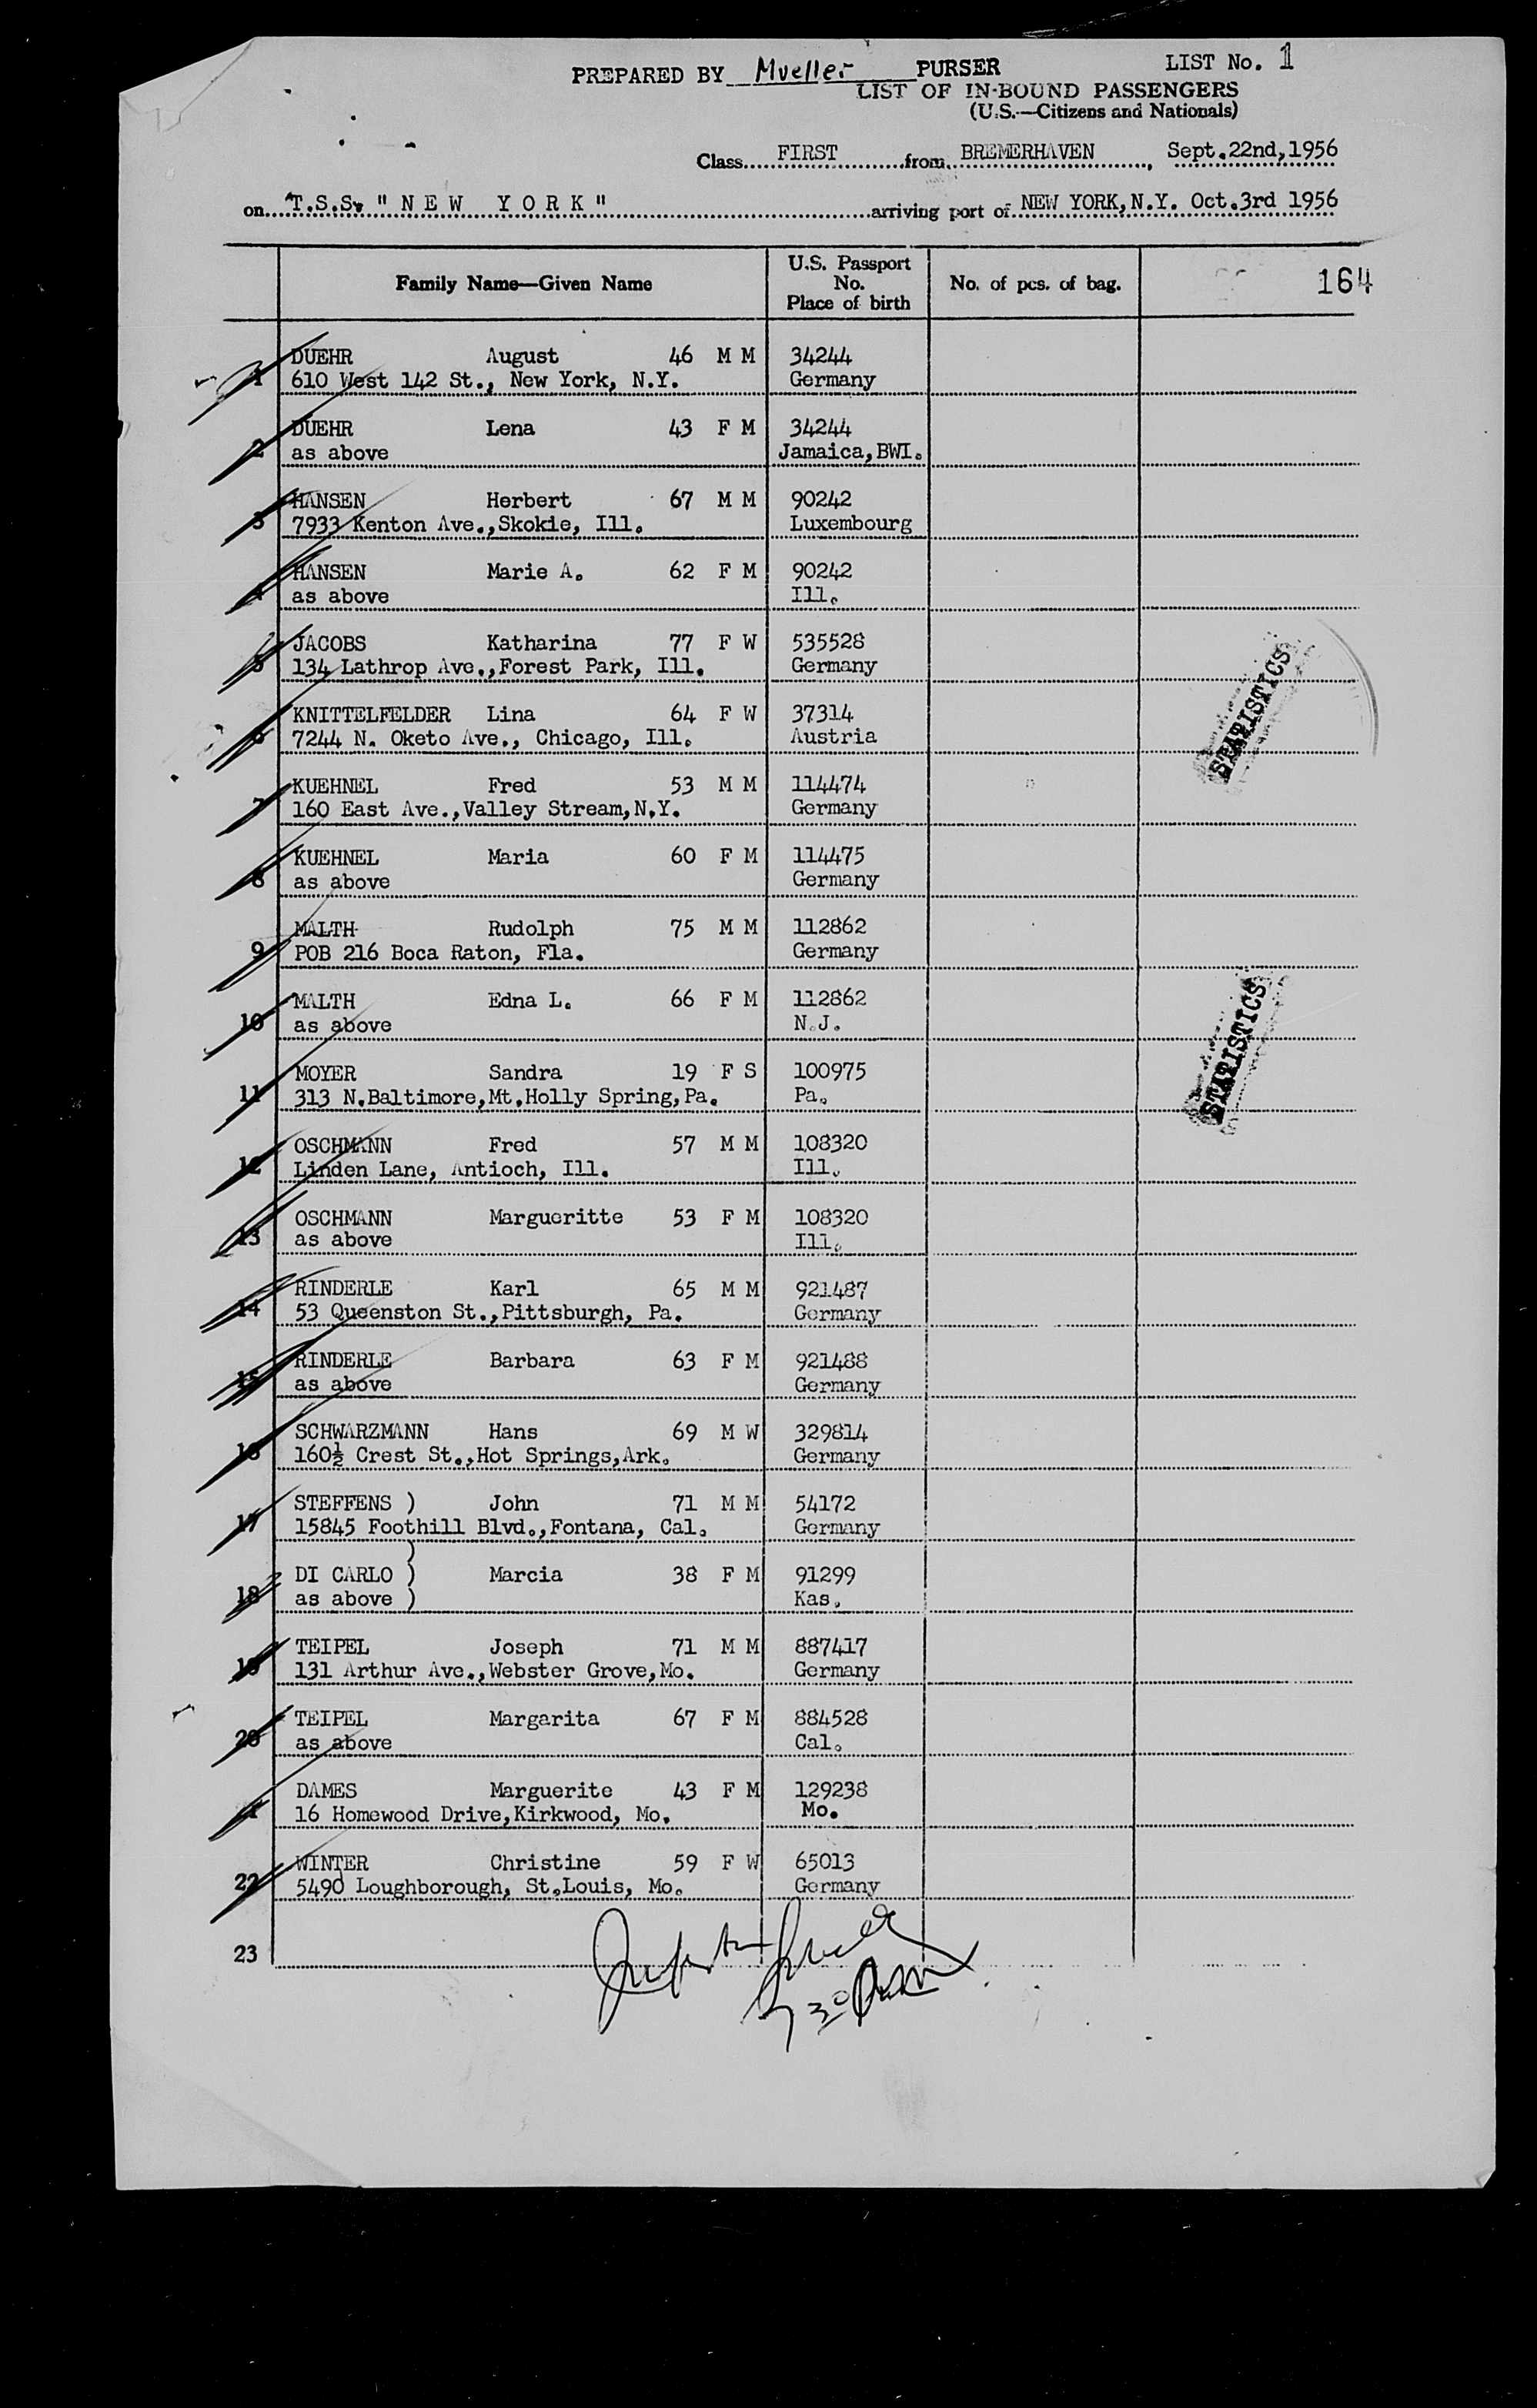 PREPARED BY Mueller PURSER LIST No. 1
LIST OF IN-BOUND PASSENGERS
(U.S.—Citizens and Nationals)
Class FIRST from BREMERHAVEN, Sept.22nd,1956
on T.S.S. " N E W Y O R K " arriving port of NEW YORK,N.Y. Oct.3rd 1956
Family Name—Given Name U.S. Passport No. Place of birth No. of pcs. of bag. 164
1 DUEHR August 46 M M 34244
610 West 142 St., New York, N.Y. Germany
2 DUEHR Lena 43 F M 34244
as above Jamaica,BWI.
3 HANSEN Herbert 67 M M 90242
7933 Kenton Ave.,Skokie, Ill. Luxembourg
4 HANSEN Marie A. 62 F M 90242
as above Ill.
5 JACOBS Katharina 77 F W 535528
134 Lathrop Ave.,Forest Park, Ill. Germany
6 KNITTELFELDER Lina 64 F W 37314
7244 N. Oketo Ave., Chicago, Ill. Austria
STATISTICS
7 KUEHNEL Fred 53 M M 114474
160 East Ave.,Valley Stream,N.Y. Germany
8 KUEHNEL Maria 60 F M 114475
as above Germany
9 MALTH Rudolph 75 M M 112862
POB 216 Boca Raton, Fla. Germany
10 MALTH Edna L. 66 F M 112862
as above N.J.
STATISTICS
11 MOYER Sandra 19 F S 100975
313 N.Baltimore,Mt.Holly Spring,Pa. Pa.
12 OSCHMANN Fred 57 M M 108320
Linden Lane, Antioch, Ill. Ill.
13 OSCHMANN Margueritte 53 F M 108320
as above Ill.
14 RINDERLE Karl 65 M M 921487
53 Queenston St.,Pittsburgh, Pa. Germany
15 RINDERLE Barbara 63 F M 921488
as above Germany
16 SCHWARZMANN Hans 69 M W 329814
160½ Crest St.,Hot Springs,Ark. Germany
17 STEFFENS ) John 71 M M 54172
15845 Foothill Blvd.,Fontana, Cal. Germany
)
18 DI CARLO ) Marcia 38 F M 91299
as above ) Kas.
19 TEIPEL Joseph 71 M M 887417
131 Arthur Ave.,Webster Grove,Mo. Germany
20 TEIPEL Margarita 67 F M 884528
as above Cal.
DAMES Marguerite 43 F M 129238
16 Homewood Drive,Kirkwood, Mo. Mo.
22 WINTER Christine 59 F W 65013
5490 Loughborough, St.Louis, Mo. Germany
23